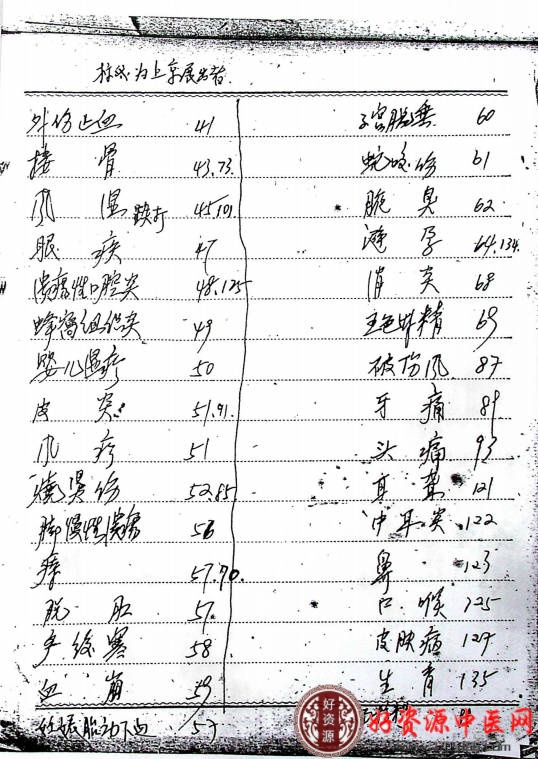 外伤止血 41
接骨 43.73.
风湿 跌打 45.101
眼疾 47
溃疡性口腔炎 48.125
蜂窝组织炎 49
婴儿湿疹 50
皮炎 51.91.
风疹 51
烧烫伤 52.85
脚慢性溃疡 56
痔 57.70.
脱肛 57.
产后 58
血崩 59
妊娠胎动下血 57
子宫脱垂 60
蛇咬伤 61
腋臭 62
避孕 64.134
消炎 68
87
破伤风 87
牙痛 89
头痛 93
耳聋 121
中耳炎 122
鼻 123
口喉 125
皮肤病 127
生育 135
好资源
中医
好资源中医网